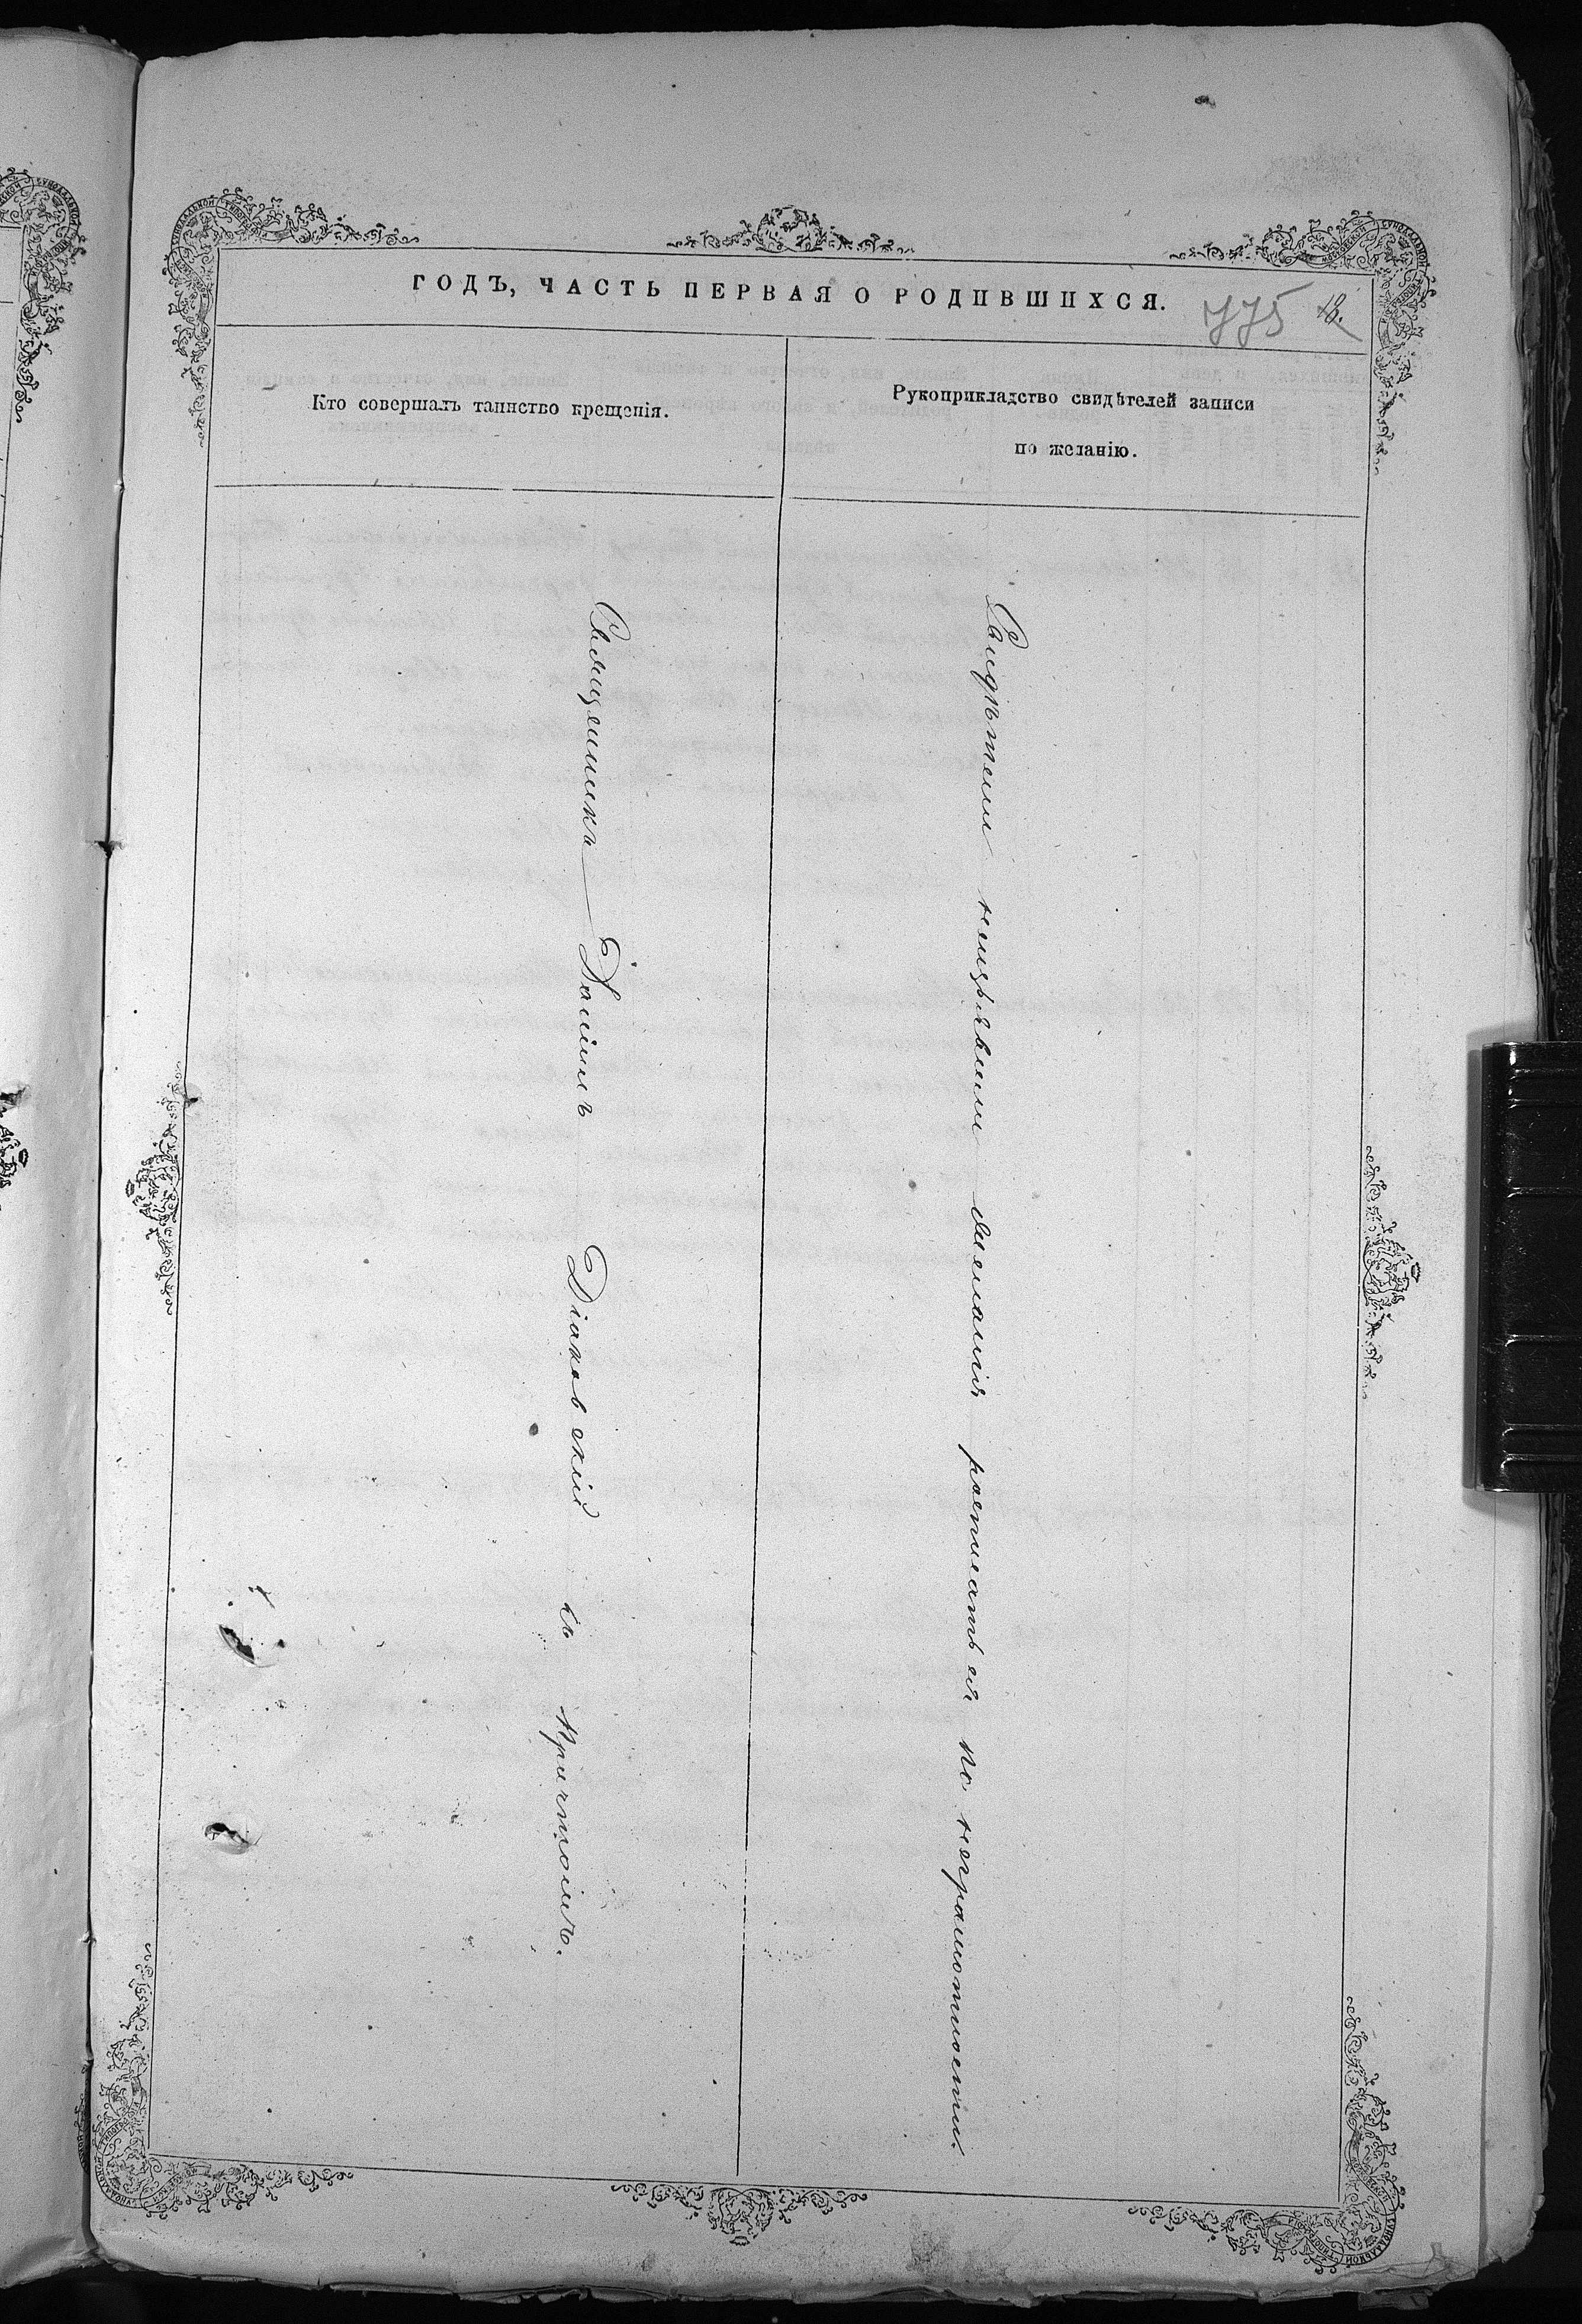 ГОДЪ, ЧАСТЬ ПЕРВАЯ О РОДИВШИХСЯ.
775 18.
Кто совершалъ таинство крещенія.
Рукоприкладство свидѣтелей записи
по желанію.
Священникъ Даніилъ Діаковскій съ причтомъ.
Свидѣтели неизъявили желанія росписаться по неграмотности.